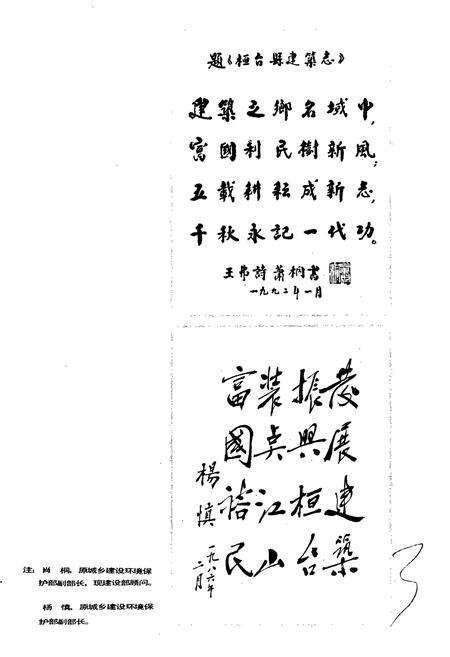 題《桓台縣建築志》
建築之鄉名域中，
富國利民樹新風；
五載耕耘成新志，
千秋永記一代功。
詩蕭桐書
一九九二年一月
發展建築
振興桓台
裝点江山
富國裕民
楊慎
一九八六年
二月
注：肖 桐，原城乡建设环境保
护部副部长，现建设部顾问。
杨 慎，原城乡建设环境保
护部副部长。
3